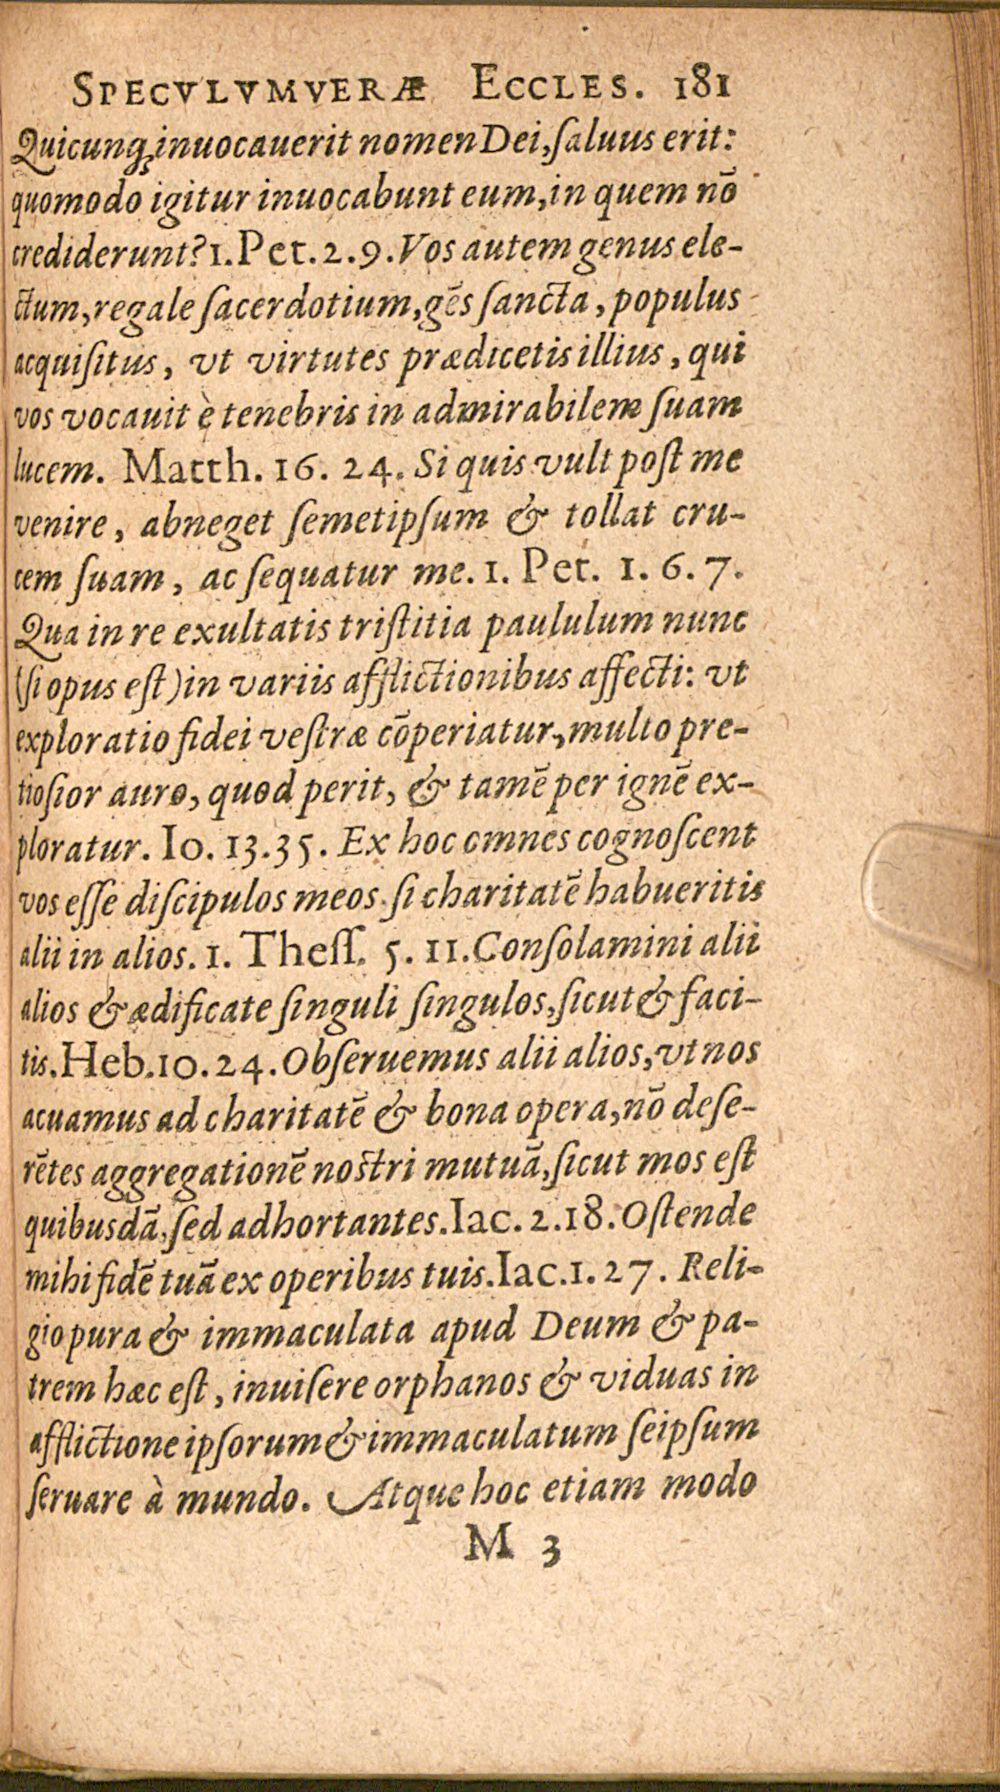 SPECVLVM VERÆ ECCLES. 181
Quicunq; inuocauerit nomen Dei, ſaluus erit:
quomodo igitur inuocabunt eum, in quem nō
crediderunt? 1. Pet. 2. 9. Vos autem genus ele-
ctum, regale ſacerdotium, gēs ſancta, populus
acquiſitus, vt virtutes prædicetis illius, qui
vos vocauit è tenebris in admirabilem ſuam
lucem. Matth. 16. 24. Si quis vult poſt me
venire, abneget ſemetipſum & tollat cru-
cem ſuam, ac ſequatur me. 1. Pet. 1. 6. 7.
Qua in re exultatis triſtitia paululum nunc
(ſi opus eſt) in variis afflictionibus affecti: vt
exploratio fidei veſtræ cōperiatur, multo pre-
tioſior auro, quod perit, & tamē per ignē ex-
ploratur. Io. 13. 35. Ex hoc omnes cognoſcent
vos eſſe diſcipulos meos. ſi charitatē habueritis
alii in alios. 1. Theſſ. 5. 11. Conſolamini alii
alios & ædificate ſinguli ſingulos, ſicut & faci-
tis. Heb. 10. 24. Obſeruemus alii alios, vt nos
acuamus ad charitatē & bona opera, nō deſe-
rētes aggregationē noſtri mutuā, ſicut mos eſt
quibusdā, ſed adhortantes. Iac. 2. 18. Oſtende
mihi fidē tuā ex operibus tuis. Iac. 1. 27. Reli-
gio pura & immaculata apud Deum & pa-
trem hæc eſt, inuiſere orphanos & viduas in
afflictione ipſorum & immaculatum ſeipſum
ſeruare à mundo. Atque hoc etiam modo
M 3